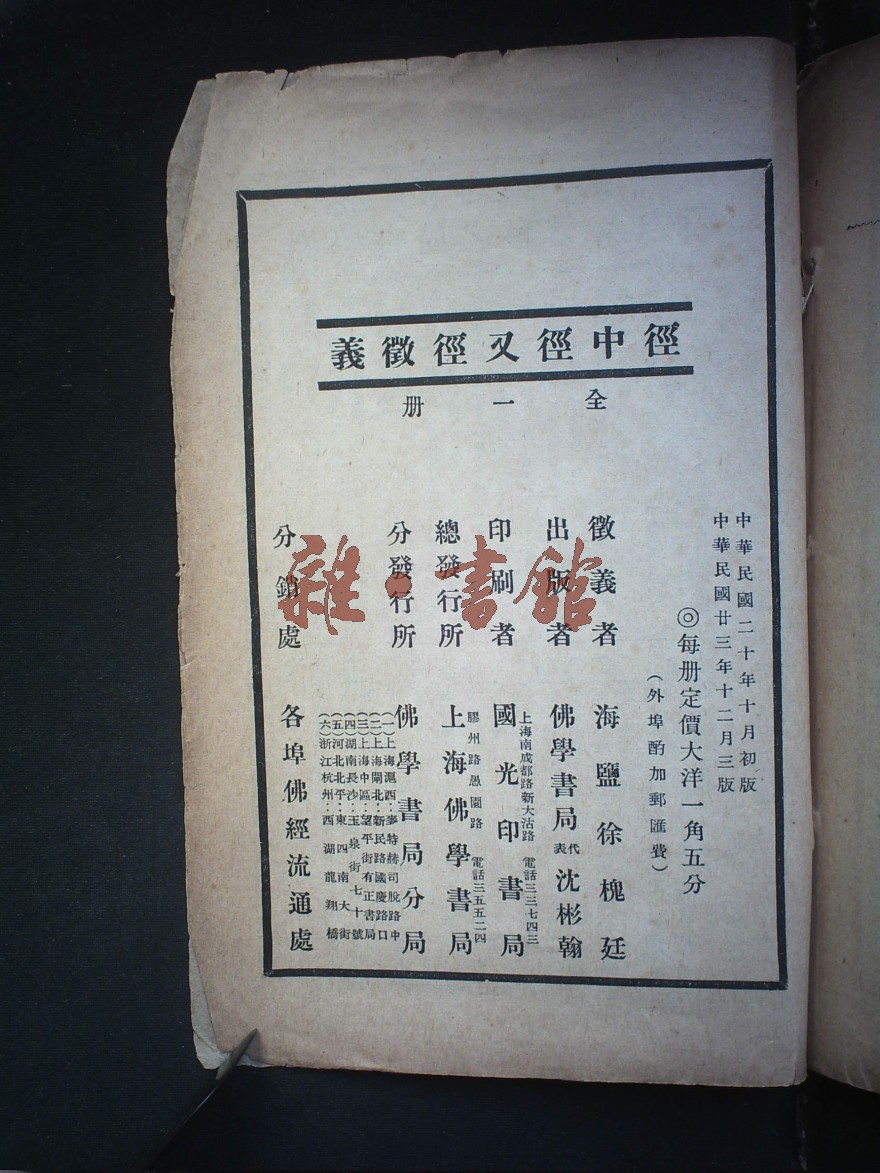 徑中徑又徑徵義
全一册
中華民國二十年十月初版
中華民國廿三年十二月三版
◎每册定價大洋一角五分
（外埠酌加郵匯費）
徵義者　海鹽徐槐廷
出版者　佛學書局代表沈彬翰
印刷者　國光印書局
上海南成都路新大沽路　電話三三七四三
總發行所　上海佛學書局
膠州路愚園路　電話三五五二四
分發行所　佛學書局分局
（一）上海滬西：麥特赫司脫路中
（二）上海閘北：新民路國慶路口
（三）上海中區：望平街有正書局
（四）湖南長沙：玉泉街七十號
（五）河北北平：東四南大街
（六）浙江杭州：西湖龍翔橋
分銷處　各埠佛經流通處
雜·書館